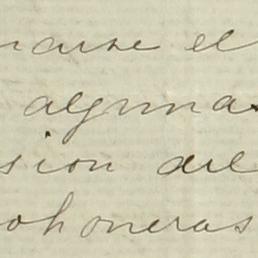 narse el
alguna
sion del
ohoneras